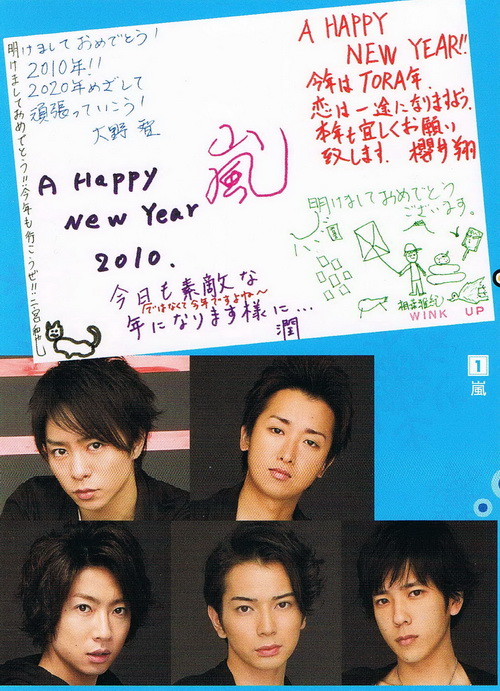 明けましておめでとう!!今年も行こうぜ!!二宮和也
明けまして おめでとう!
2010年!!
2020年めざして
頑張っていこう!
大野 智
A HAPPY
NEW YEAR!!
今年はTORA年、
恋は一途になりますよう。
本年も宜しくお願い
致します. 櫻井翔
嵐
A Happy
New Year
2010.
今日も素敵な
今日はなくて今年ですよね〜
年になります様に…
潤
明けましておめでとう
ございます。
相葉雅紀
WINK UP
1
嵐